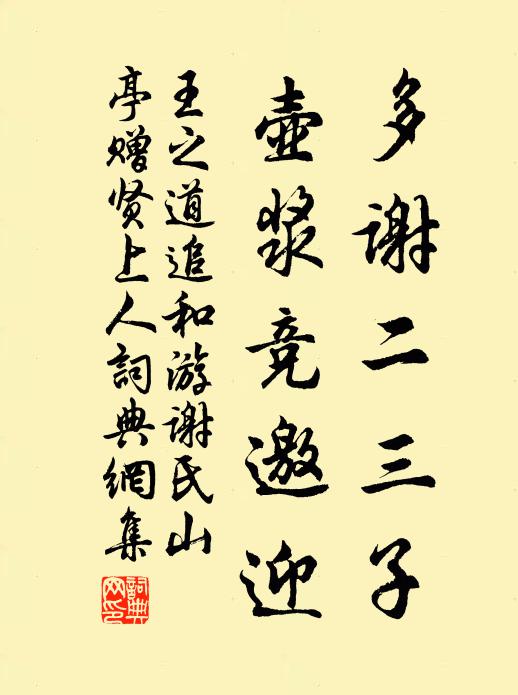 多谢二三子
壶浆竞邀迎
王之道追和游谢氏山
亭赠贤上人詞典網集
詞典
网印